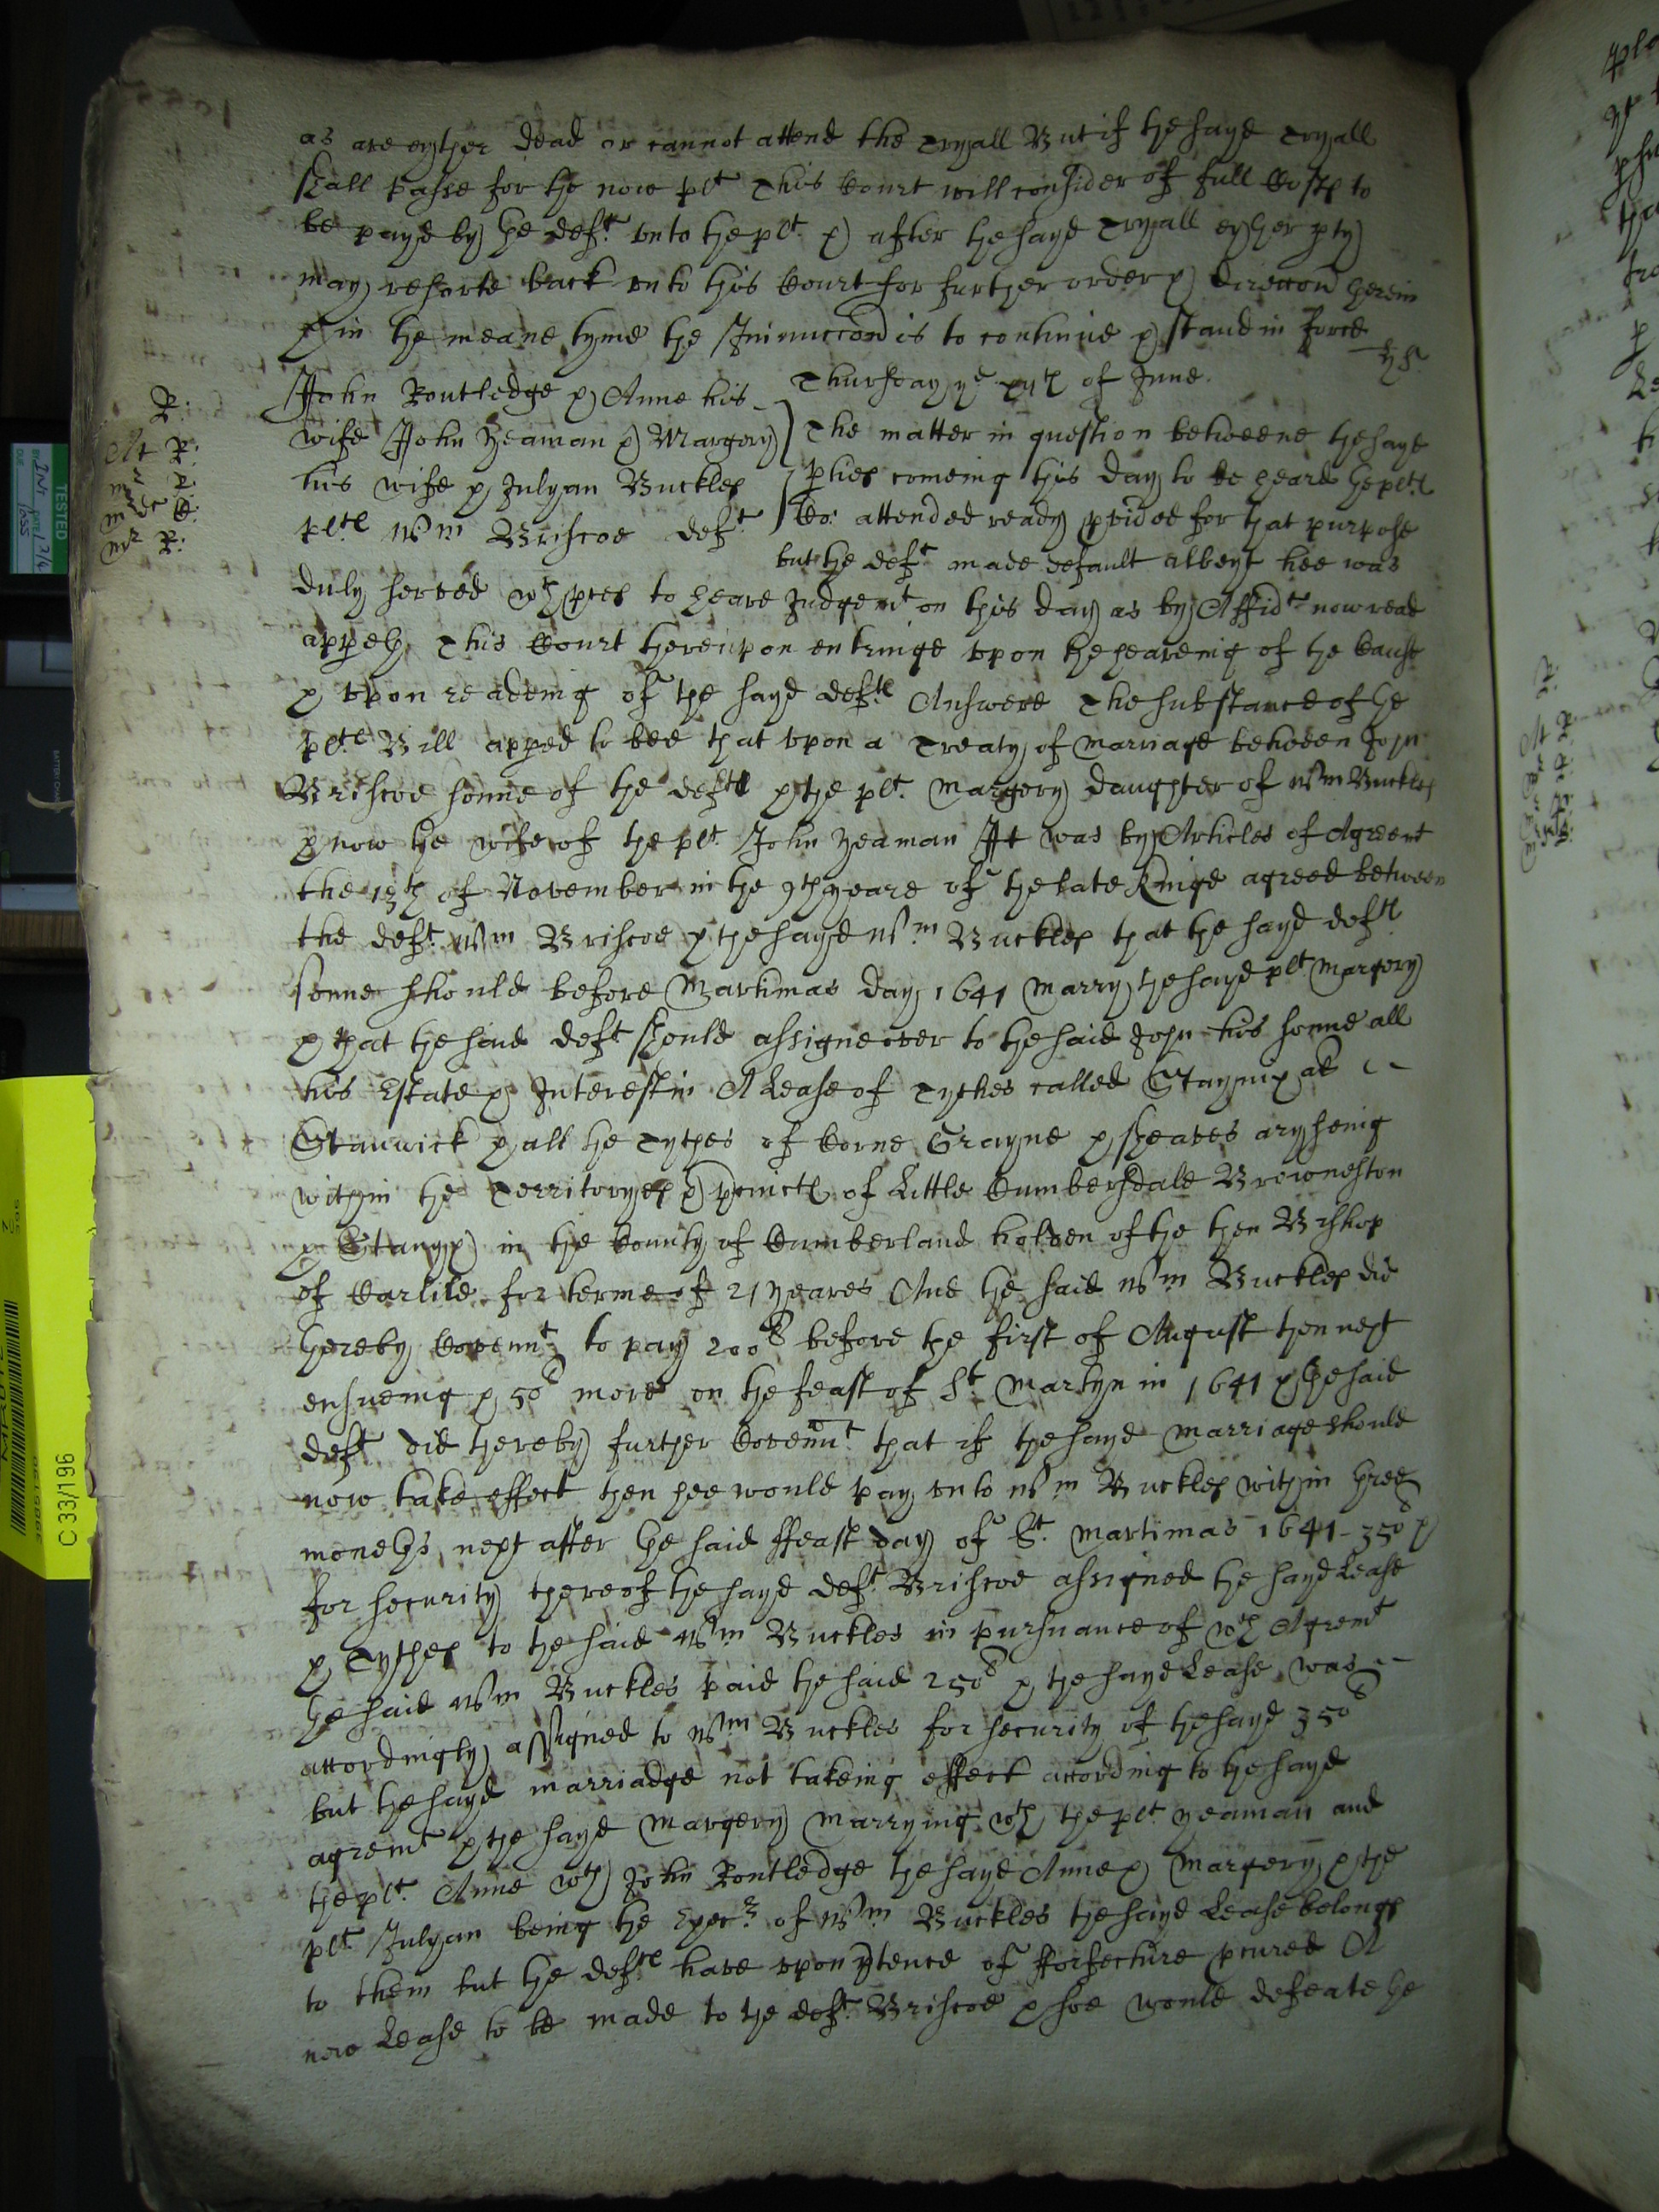 as are eyther dead or cannot attend the Tryall But if the sayd Tryall
shall passe for the now plt This Court will consider of full Costs to
be payd by the deft vnto the plt & after the sayd Tryall eyther pty
may resorte back vnto this Court for further order & direccon herein
& in the meane tyme the Iniunccon is to continue & stand in force
Thursday ye xijth of June
John Routledge & Anne his
wife John Yeaman & Margery
his wife & Julyan Buckles
pltes Wm Briscoe deft
The matter in question betweene the sayd
pties comeing this day to be heard the pltes
Co: attended ready pvided for that purpose
but the deft made default albeyt hee was
duly served wth pces to heare Judgemt on this day as by Affidt now read
appeth, This Court thereupon entringe vpon the heareing of the Cause
& vpon readeing of the sayd deftes Answere The substance of the
pltes Bill apped to bee that vpon a Treaty of marriage betweene John
Briscoe sonne of the deftes & the plt Margery daughter of Wm Buckles
& now the wife of the plt John Yeaman It was by Articles of Agreemt
the 13th of November in the 9th yeare of the late Kinge agreed between
the deft Wm Briscoe & the sayd Wm Buckles that the sayd deftes
sonne should before Martimas day 1641 marry the sayd plt Margery
& that the said deft should assigne over to the said John his sonne all
his Estate & Interest in A Lease of Tythes called at
Stanwick & all the Tythes of Corne Grayne & sheaves aryseing
within the Territoryes & pcincts of Little Cumbersdale Browneston
& in the County of Cumberland holden of the then Bishop
of Carlile for terme of 21 yeares And the said Wm Buckles did
thereby Covennt to pay 200l before the first of August then next
ensueing & 50l more on the feast of St Martyn in 1641 & the said
deft did thereby further Covennt that if the sayd marriage should
not take effect then hee would pay vnto Wm Buckles within three
monethes next after the said ffeast day of St Martimas 1641 - 350l &
for security thereof the sayd deft Briscoe assigned the sayd Lease
& Tythes to the said Wm Buckles in pursuance of wch Agremt
the said Wm Buckles paid the said 250l & the sayd Lease was
accordingly assigned to Wm Buckles for security of the sayd 350l
but the sayd marriadge not takeing effect according to the sayd
agremt & the sayd Margery marrying wth the plt Yeaman and
the plt Anne wth John Routledge the sayd Anne & Margery & the
plt Julyan being the Execrs of Wm Buckles the sayd Lease belongs
to them but the deftes have vpon ptence of fforfecture pcured A
new Lease to be made to the deft Briscoe & soe would defeate the
TESTED
C 33/196